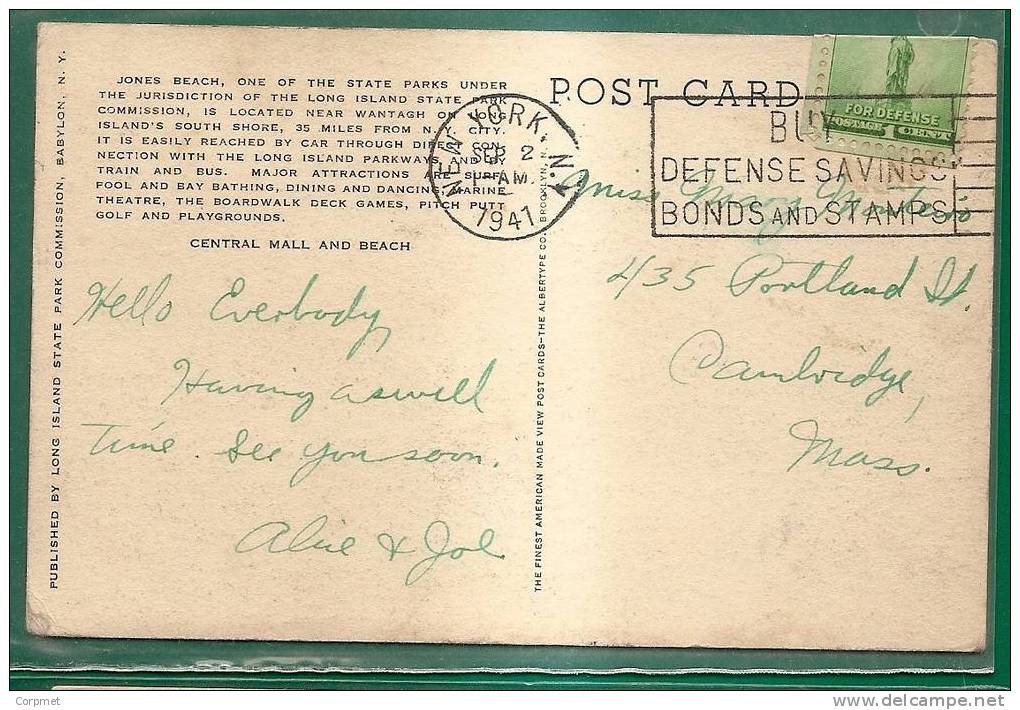 JONES BEACH, ONE OF THE STATE PARKS UNDER
THE JURISDICTION OF THE LONG ISLAND STATE PARK
COMMISSION, IS LOCATED NEAR WANTAGH ON LONG
ISLAND'S SOUTH SHORE, 35 MILES FROM N.Y. CITY.
IT IS EASILY REACHED BY CAR THROUGH DIRECT CON-
NECTION WITH THE LONG ISLAND PARKWAYS, AND BY
TRAIN AND BUS. MAJOR ATTRACTIONS ARE SURF,
POOL AND BAY BATHING, DINING AND DANCING, MARINE
THEATRE, THE BOARDWALK DECK GAMES, PITCH PUTT
GOLF AND PLAYGROUNDS.
CENTRAL MALL AND BEACH
PUBLISHED BY LONG ISLAND STATE PARK COMMISSION, BABYLON, N. Y.
Hello Everbody,
Having a swell
Time. See you soon.
Alice & Joe
THE FINEST AMERICAN MADE VIEW POST CARDS—THE ALBERTYPE CO., BROOKLYN, N.
POST CARD
NEW YORK, N.Y.
SEP 2
AM
1941
BUY
DEFENSE SAVINGS
BONDS AND STAMPS
FOR DEFENSE
POSTAGE 1 CENT
Miss Mary
435 Portland St.
Cambridge,
Mass.
Corpmet
delcampe.net